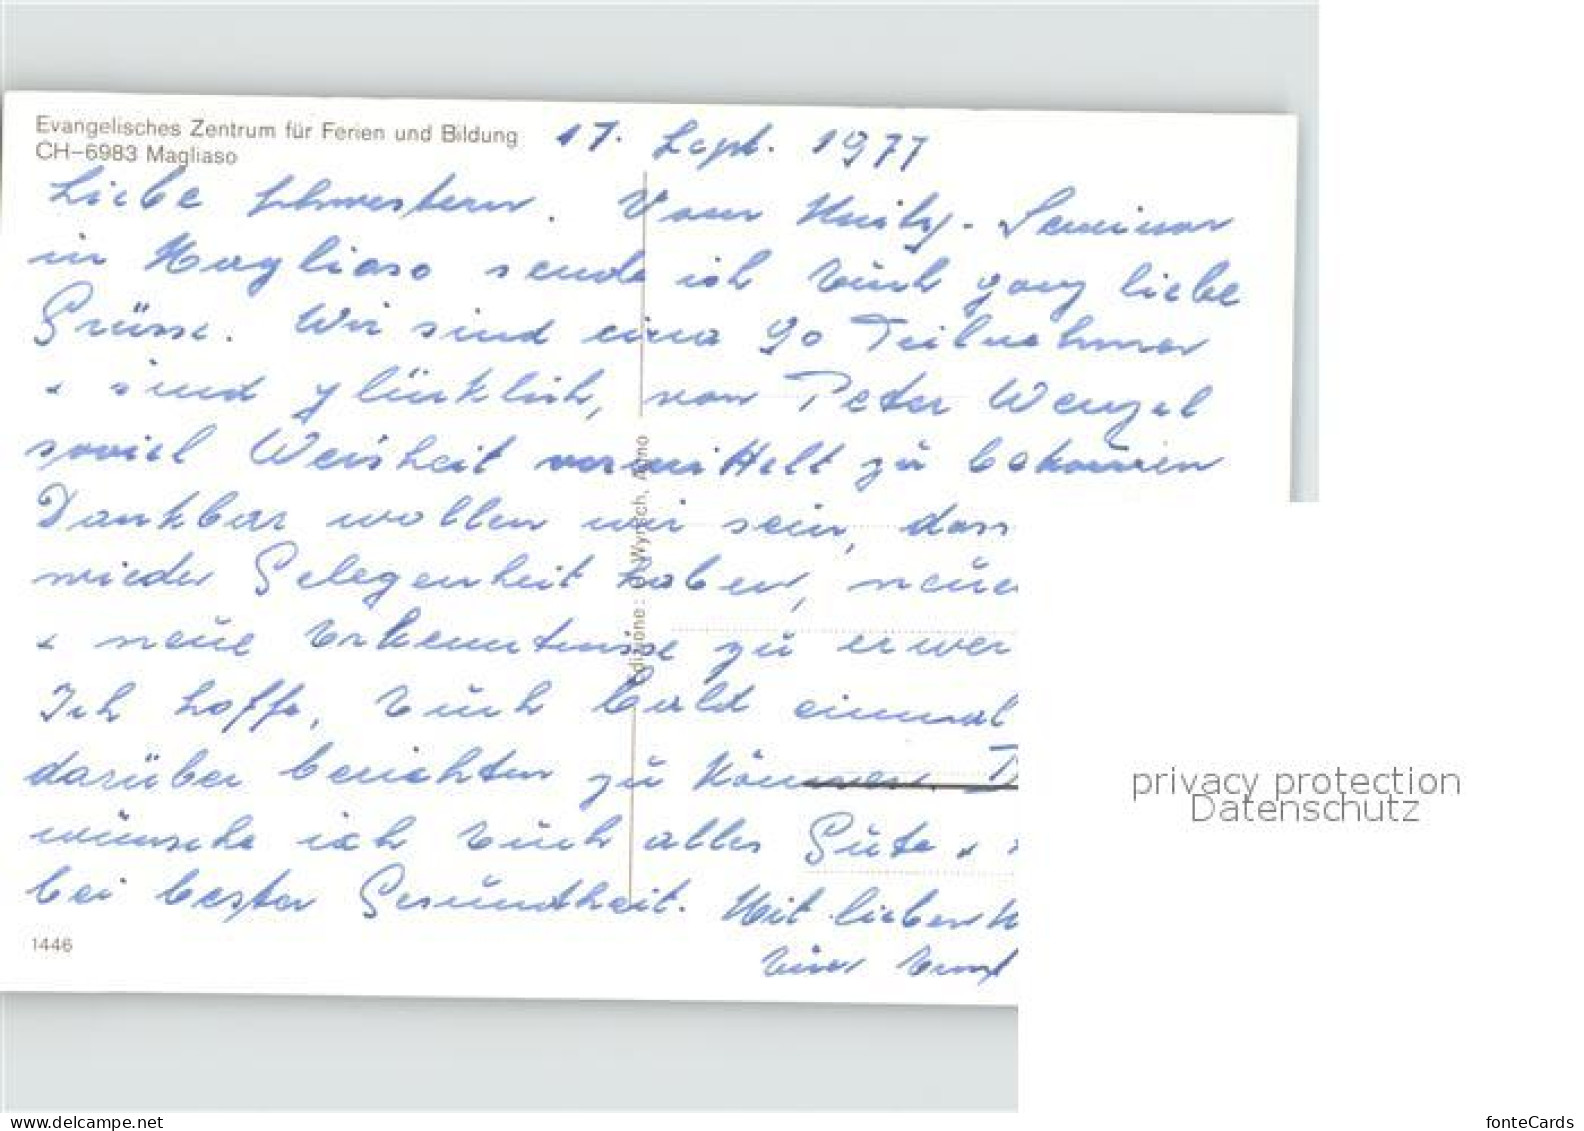 Evangelisches Zentrum für Ferien und Bildung
CH-6983 Magliaso
17. Sept. 1977
Liebe Schwestern. Vom Unity-Seminar
in Magliaso sende ich Euch ganz liebe
Grüsse. Wir sind circa 90 Teilnehmer
+ sind glücklich, von Peter Wenzel
soviel Weisheit vermittelt zu bekommen
Dankbar wollen wir sein, dass
wieder Gelegenheit haben, neue
+ neue Erkenntnisse zu erwer
Ich hoffe, Euch bald einmal
darüber berichten zu können.
wünsche ich Euch alles Gute +
bei bester Gesundheit. Mit lieben
Euer Ernst
Edizione: Wyrsch, Agno
1446
privacy protection
Datenschutz
www.delcampe.net
fonteCards